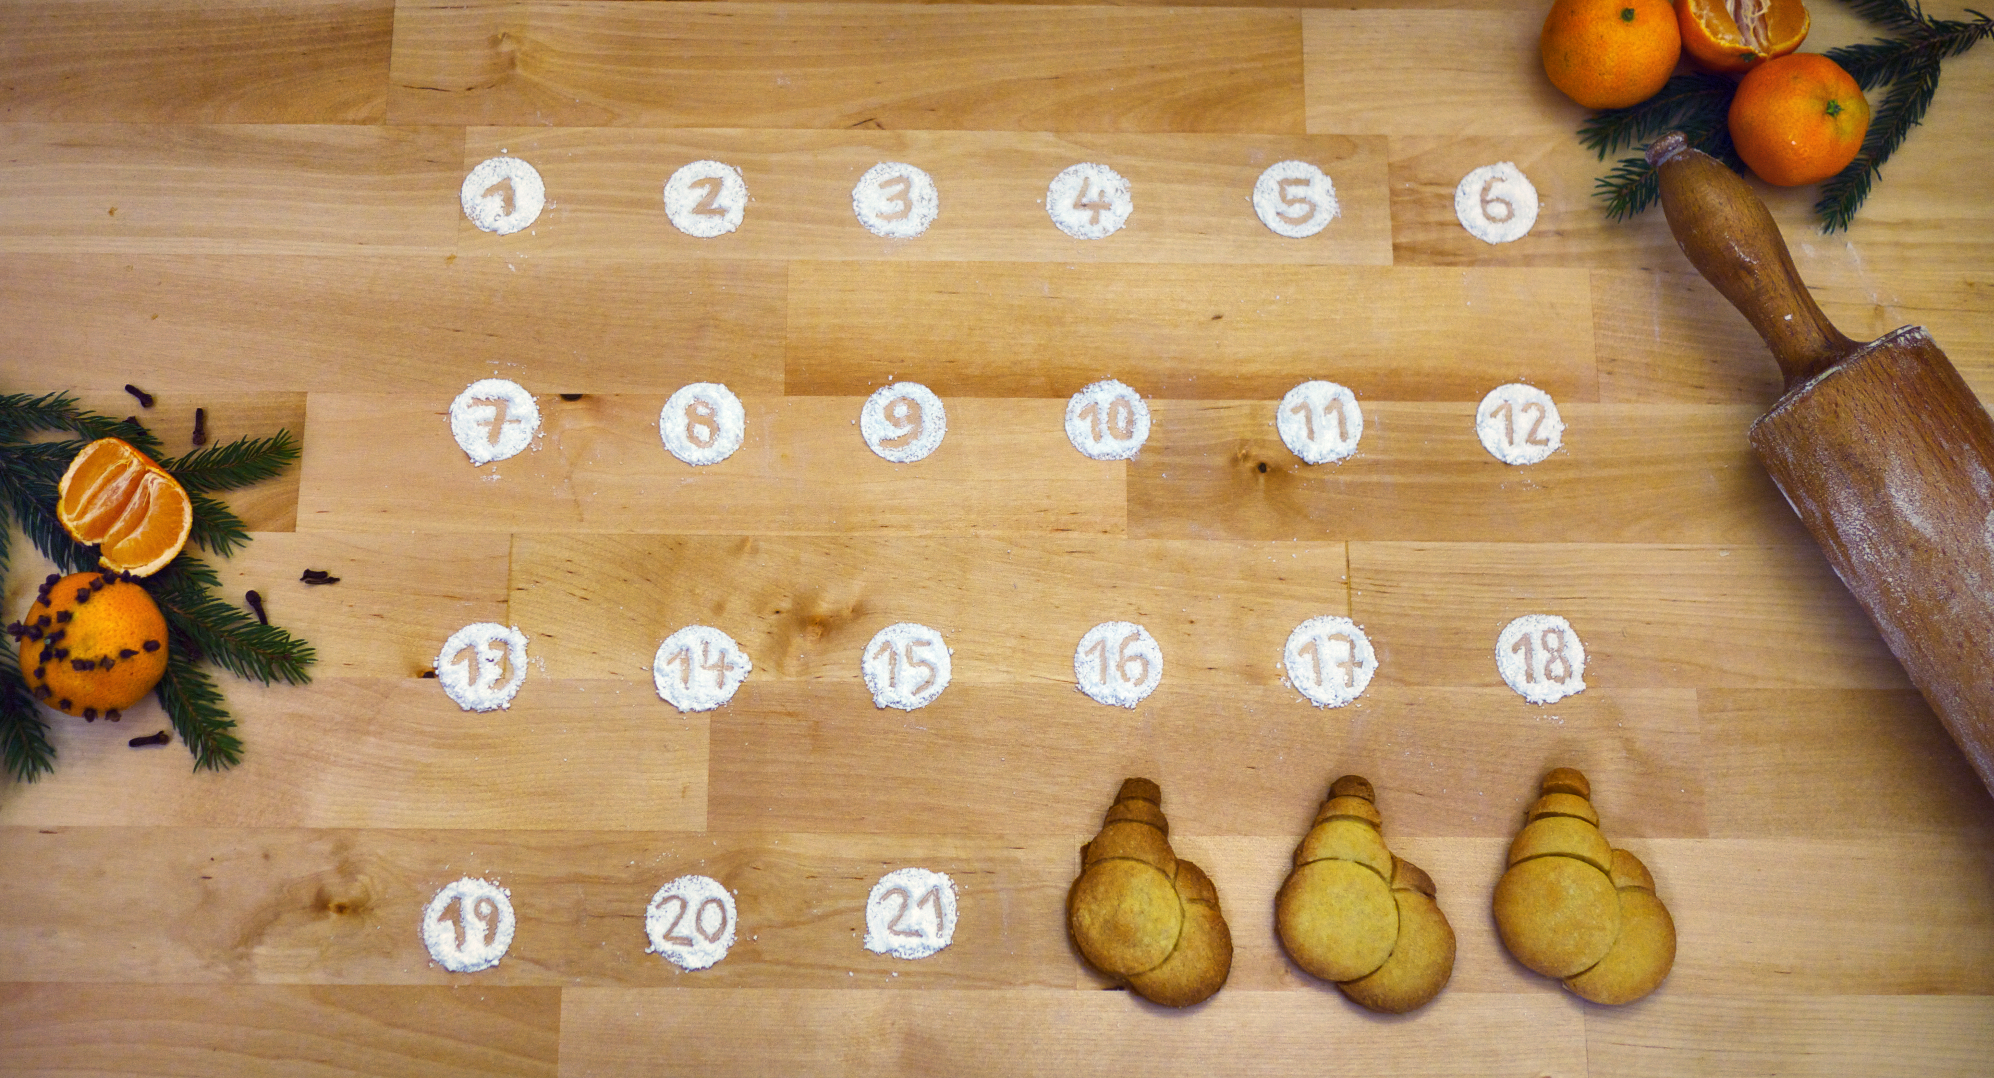 1 2 3 4 5 6
7 8 9 10 11 12
13 14 15 16 17 18
19 20 21